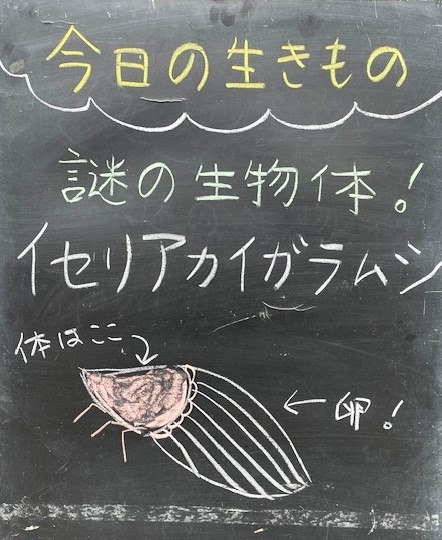 今日の生きもの
謎の生物体!
イセリアカイガラムシ
体はここ
←卵!